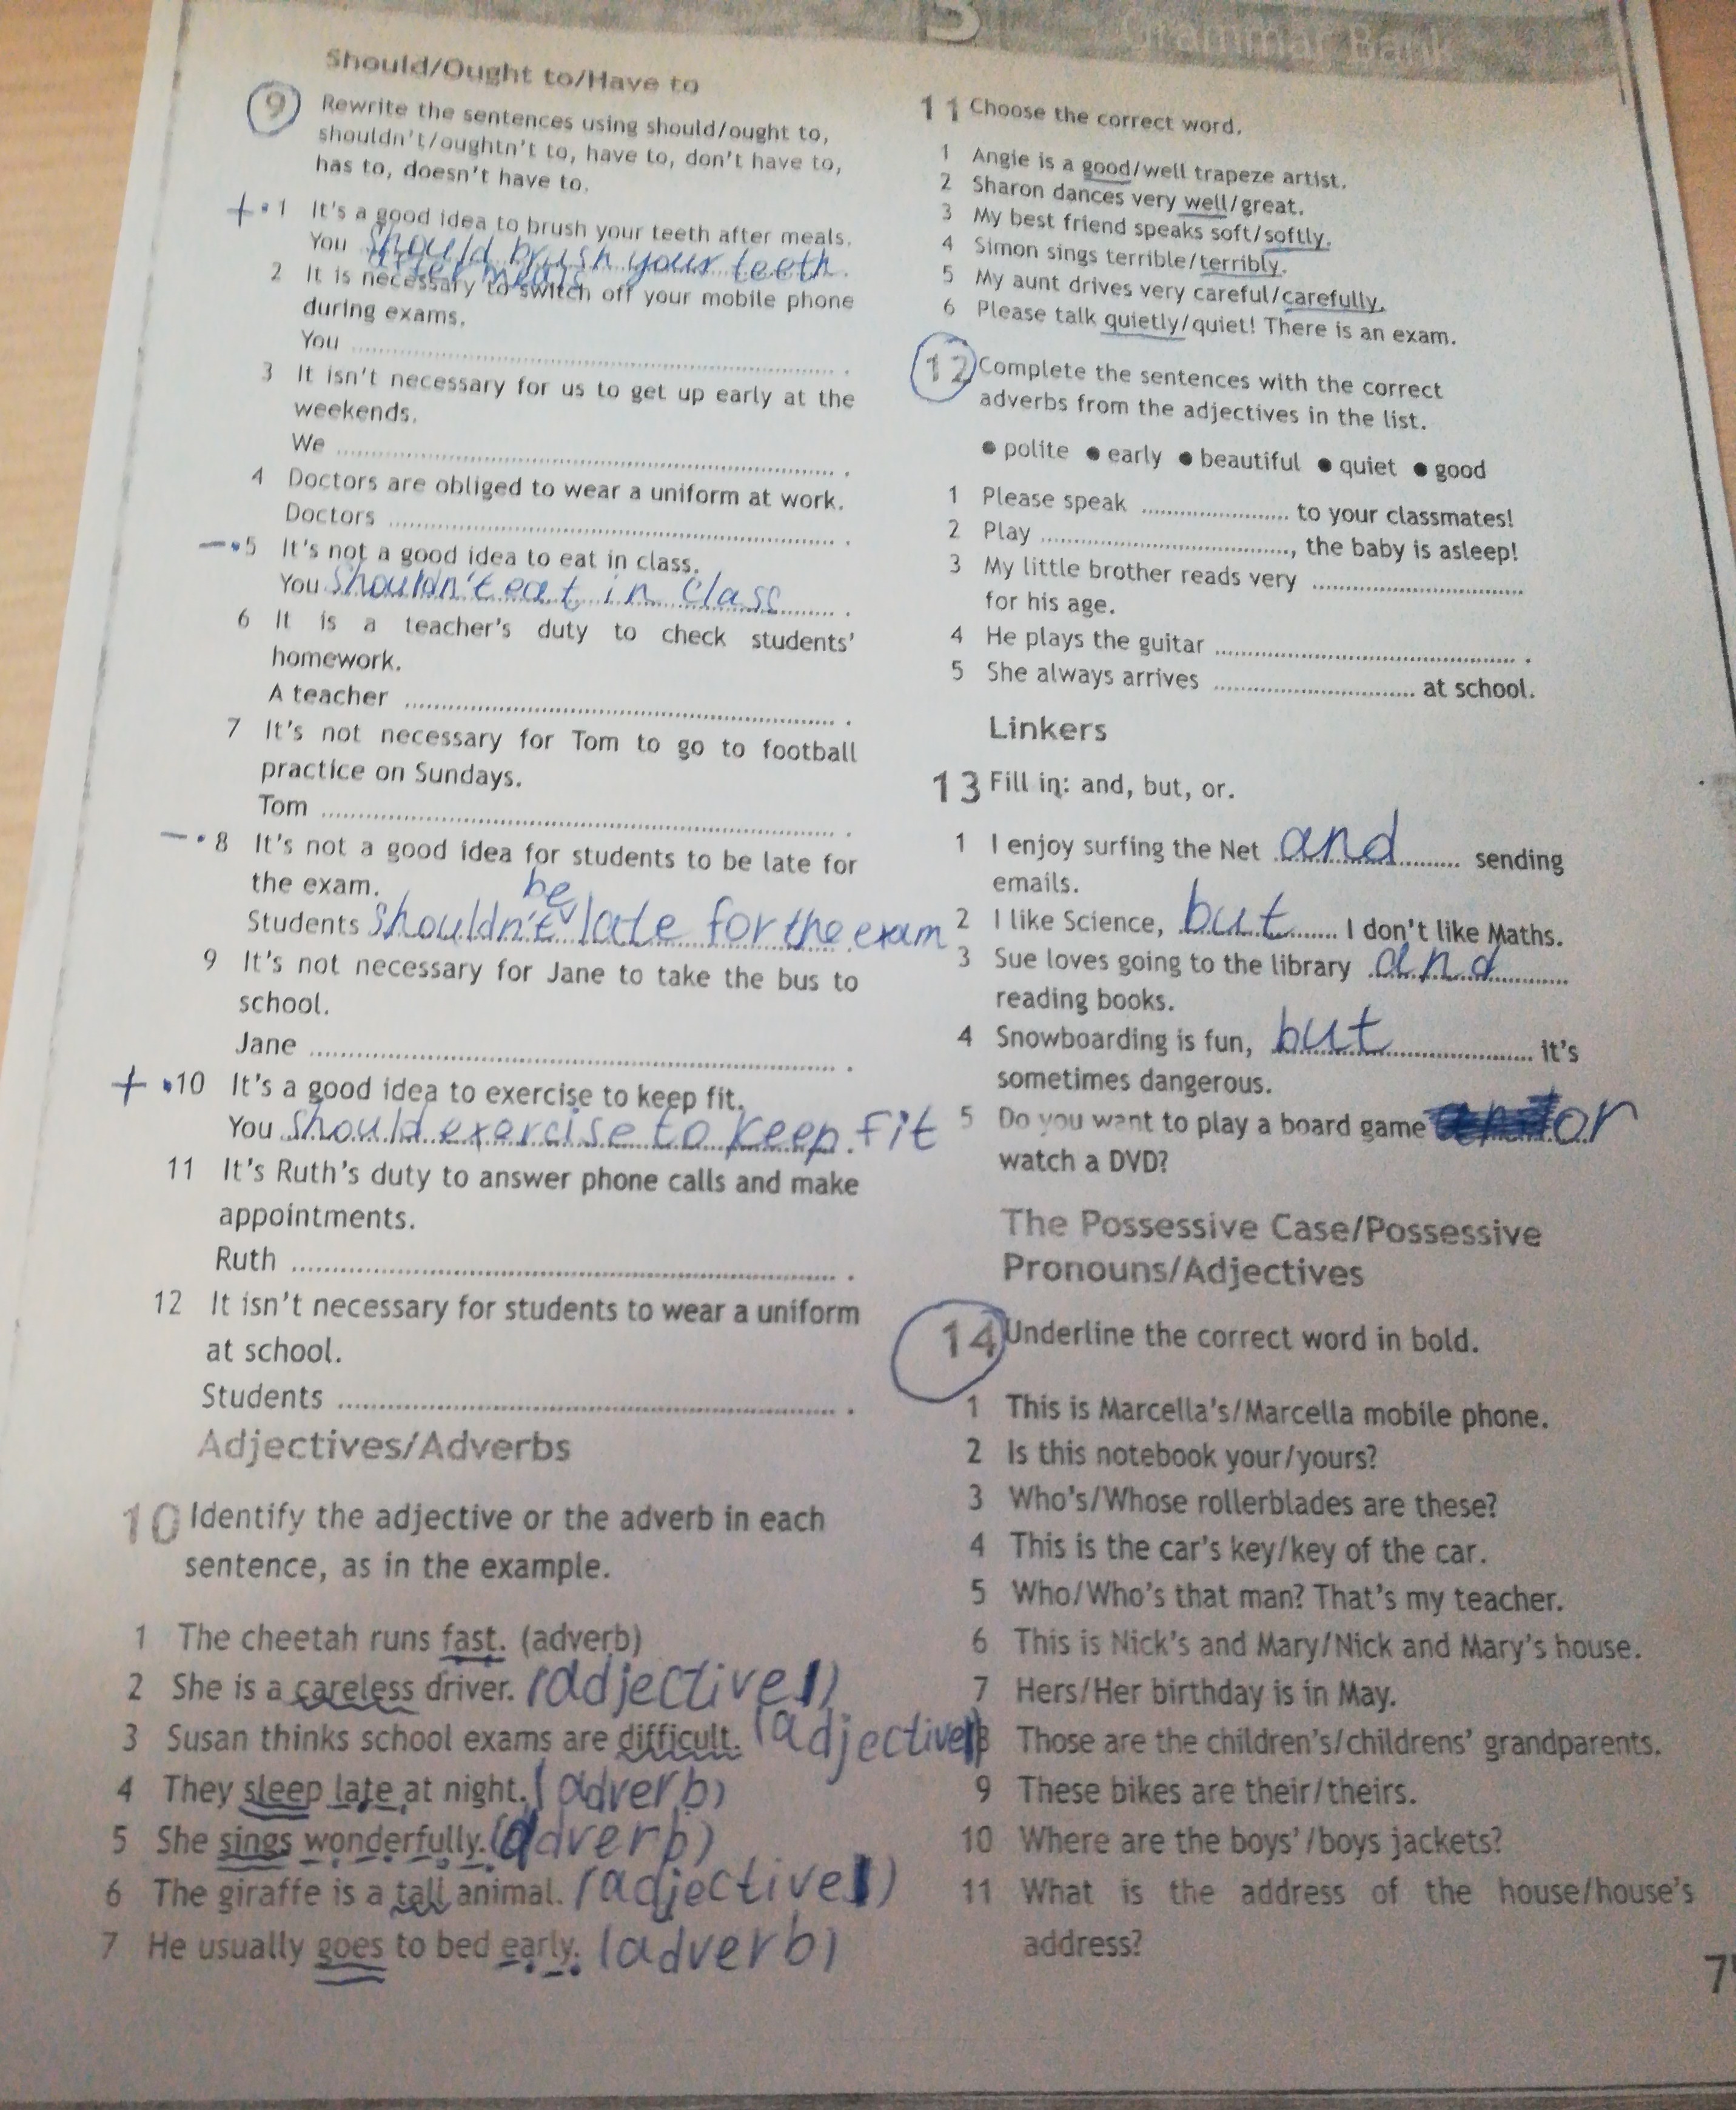 3 Grammar Bank
Should/Ought to/Have to
9 Rewrite the sentences using should/ought to,
shouldn't/oughtn't to, have to, don't have to,
has to, doesn't have to.
+ • 1 It's a good idea to brush your teeth after meals.
You should brush your teeth.
after meals
2 It is necessary to switch off your mobile phone
during exams.
You ........................ .
3 It isn't necessary for us to get up early at the
weekends.
We ........................ .
4 Doctors are obliged to wear a uniform at work.
Doctors ........................ .
— • 5 It's not a good idea to eat in class.
You shouldn't eat in class .
6 It is a teacher's duty to check students'
homework.
A teacher ........................ .
7 It's not necessary for Tom to go to football
practice on Sundays.
Tom ........................ .
— • 8 It's not a good idea for students to be late for
the exam.
be
Students shouldn't ˅ late for the exam
9 It's not necessary for Jane to take the bus to
school.
Jane ........................ .
+ • 10 It's a good idea to exercise to keep fit.
You should exercise to keep fit
11 It's Ruth's duty to answer phone calls and make
appointments.
Ruth ........................ .
12 It isn't necessary for students to wear a uniform
at school.
Students ........................ .
Adjectives/Adverbs
10 Identify the adjective or the adverb in each
sentence, as in the example.
1 The cheetah runs fast. (adverb)
2 She is a careless driver. (adjective)
3 Susan thinks school exams are difficult. (adjective)
4 They sleep late at night. (adverb)
5 She sings wonderfully. (adverb)
6 The giraffe is a tall animal. (adjective)
7 He usually goes to bed early. (adverb)
11 Choose the correct word.
1 Angie is a good/well trapeze artist.
2 Sharon dances very well/great.
3 My best friend speaks soft/softly.
4 Simon sings terrible/terribly.
5 My aunt drives very careful/carefully.
6 Please talk quietly/quiet! There is an exam.
12 Complete the sentences with the correct
adverbs from the adjectives in the list.
• polite • early • beautiful • quiet • good
1 Please speak ........................ to your classmates!
2 Play ........................, the baby is asleep!
3 My little brother reads very ........................
for his age.
4 He plays the guitar ........................ .
5 She always arrives ........................ at school.
Linkers
13 Fill in: and, but, or.
1 I enjoy surfing the Net and sending
emails.
2 I like Science, but I don't like Maths.
3 Sue loves going to the library and
reading books.
4 Snowboarding is fun, but it's
sometimes dangerous.
5 Do you want to play a board game or
watch a DVD?
The Possessive Case/Possessive
Pronouns/Adjectives
14 Underline the correct word in bold.
1 This is Marcella's/Marcella mobile phone.
2 Is this notebook your/yours?
3 Who's/Whose rollerblades are these?
4 This is the car's key/key of the car.
5 Who/Who's that man? That's my teacher.
6 This is Nick's and Mary/Nick and Mary's house.
7 Hers/Her birthday is in May.
8 Those are the children's/childrens' grandparents.
9 These bikes are their/theirs.
10 Where are the boys'/boys jackets?
11 What is the address of the house/house's
address?